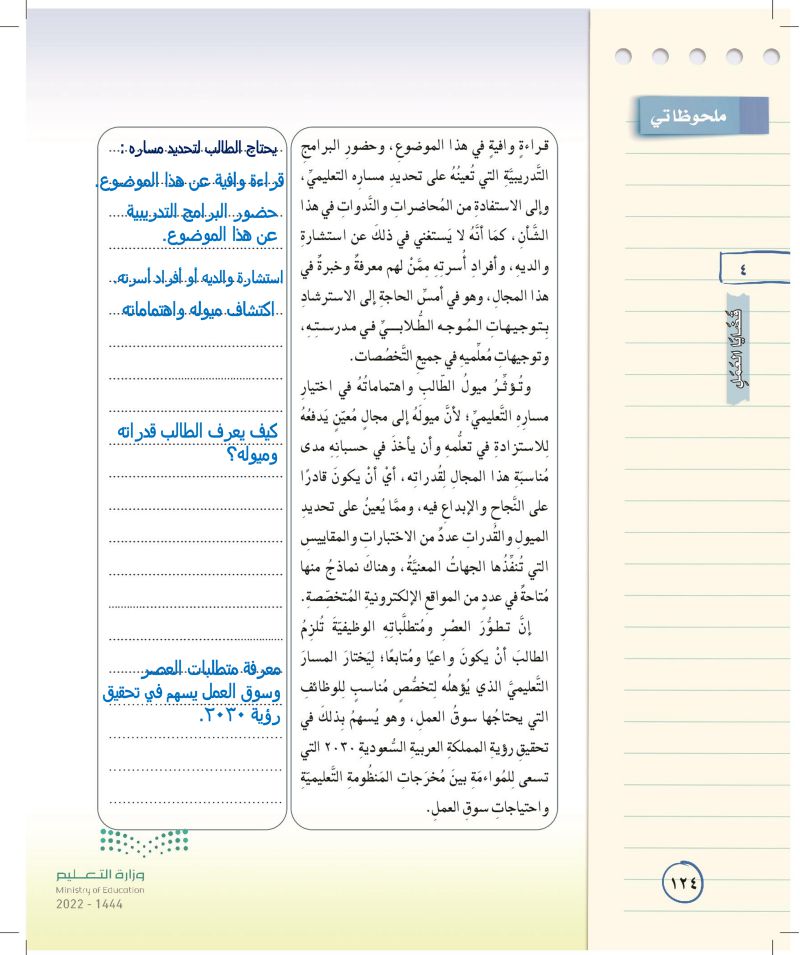 ملحوظاتي
٤
قضايا العمل
قراءةٍ وافيةٍ في هذا الموضوعِ، وحضورِ البرامجِ
التَّدريبيَّةِ التي تُعينُهُ على تحديدِ مسارِه التعليميِّ،
وإلى الاستفادةِ من المُحاضراتِ والنَّدواتِ في هذا
الشَّأنِ، كمَا أنَّهُ لا يَستغني في ذلكَ عن استشارةِ
والديهِ، وأفرادِ أُسرتِهِ مِمَّنْ لهم معرفةٌ وخبرةٌ في
هذا المجالِ، وهو في أمسِّ الحاجةِ إلى الاسترشادِ
بـتوجيهـاتِ الـمُوجـه الطُّـلابـــيِّ فـي مدرسـتِـهِ،
وتوجيهاتِ مُعلِّميه في جميعِ التَّخصُصات.
وتُـؤثِّـرُ ميولُ الطّالبِ واهتماماتُهُ في اختيارِ
مسارِهِ التَّعليميِّ؛ لأنَّ ميولَهُ إلى مجالٍ مُعيّنٍ يَدفعُهُ
لِلاستزادةِ في تعلُّمه وأن يأخذَ في حسبانِهِ مدى
مُناسبَةِ هذا المجالِ لِقُدراتِه، أيْ أنْ يكونَ قادرًا
على النَّجاحِ والإبداعِ فيه، وممَّا يُعينُ على تحديدِ
الميولِ والقُدراتِ عددٌ من الاختباراتِ والمقاييسِ
التي تُنفِّذُها الجهاتُ المعنيَّةُ، وهناكَ نماذجُ منها
مُتاحةٌ في عددٍ من المواقعِ الإلكترونيةِ المُتخصِّصةِ.
إنَّ تـطـوُّرَ العصْرِ ومُتطلَّباتِهِ الوظيفيّةَ تُلزِمُ
الطالبَ أنْ يكونَ واعيًا ومُتابعًا؛ لِيَختارَ المسارَ
التَّعليميَّ الذي يُؤهلُه لِتخصُّصٍ مُناسبٍ لِلوظائفِ
التي يحتاجُها سوقُ العملِ، وهو يُسهِمُ بِذلكَ في
تحقيقِ رؤيةِ المملكةِ العربيةِ السُّعوديةِ ٢٠٣٠ التي
تسعى لِلمُواءمَةِ بينَ مُخرَجاتِ المَنظُومةِ التَّعليميّةِ
واحتياجاتِ سوقِ العملِ.
يحتاج الطالب لتحديد مساره :
قراءة وافية عن هذا الموضوع.
حضور البرامج التدريبية
عن هذا الموضوع.
استشارة والديه أو أفراد أسرته.
اكتشاف ميوله واهتماماته
كيف يعرف الطالب قدراته
وميوله؟
معرفة متطلبات العصر
وسوق العمل يسهم في تحقيق
رؤية ٢٠٣٠.
وزارة التعـــليم
Ministry of Education
2022 - 1444
١٢٤